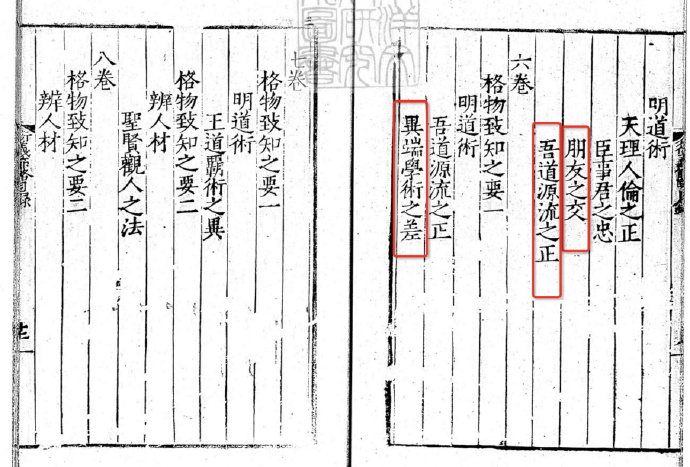 明道術
天理人倫之正
臣事君之忠
朋友之交
吾道源流之正
六卷
格物致知之要一
明道術
吾道源流之正
異端學術之差
七卷
格物致知之要一
明道術
王道霸術之異
格物致知之要二
辨人材
聖賢觀人之法
八卷
格物致知之要二
辨人材